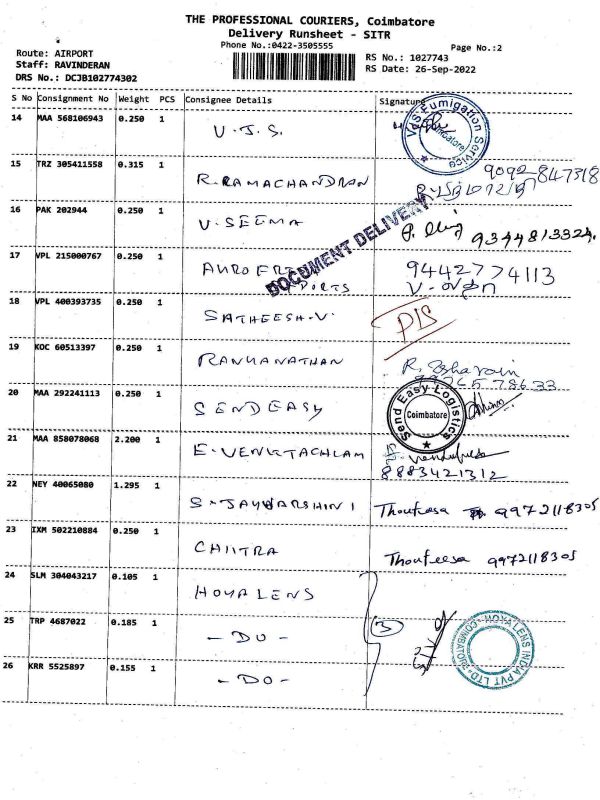 THE PROFESSIONAL COURIERS, Coimbatore
Delivery Runsheet - SITR
Phone No.:0422-3505555
Page No.:2
Route: AIRPORT
Staff: RAVINDERAN
DRS No.: DCJB102774302
RS No.: 1027743
RS Date: 26-Sep-2022
S No Consignment No Weight PCS Consignee Details Signature
14 MAA 568106943 0.250 1 V.J.S.
VJS Fumigation Service Coimbatore
15 TRZ 305411558 0.315 1 R.RAMACHANDRAN 9092847318
16 PAK 202944 0.250 1 V.SEEMA 9344813324
DOCUMENT DELIVERY
17 VPL 215000767 0.250 1 9442774113
18 VPL 400393735 0.250 1 SATHEESH.V. PIS
19 KOC 60513397 0.250 1 RANKANATHAN
20 MAA 292241113 0.250 1 SENDEASY
Send Easy Logistics Coimbatore
21 MAA 858078068 2.200 1 E.VENKTACHLAM
8883421312
22 NEY 40065080 1.295 1 9972118305
23 IXM 502210884 0.250 1 CHITRA Thoufeesa 9972118305
24 SLM 304043217 0.105 1 HOYA LENS
25 TRP 4687022 0.185 1 -DO- 3
HOYA LENS INDIA PVT LTD COIMBATORE
26 KRR 5525897 0.155 1 -DO-